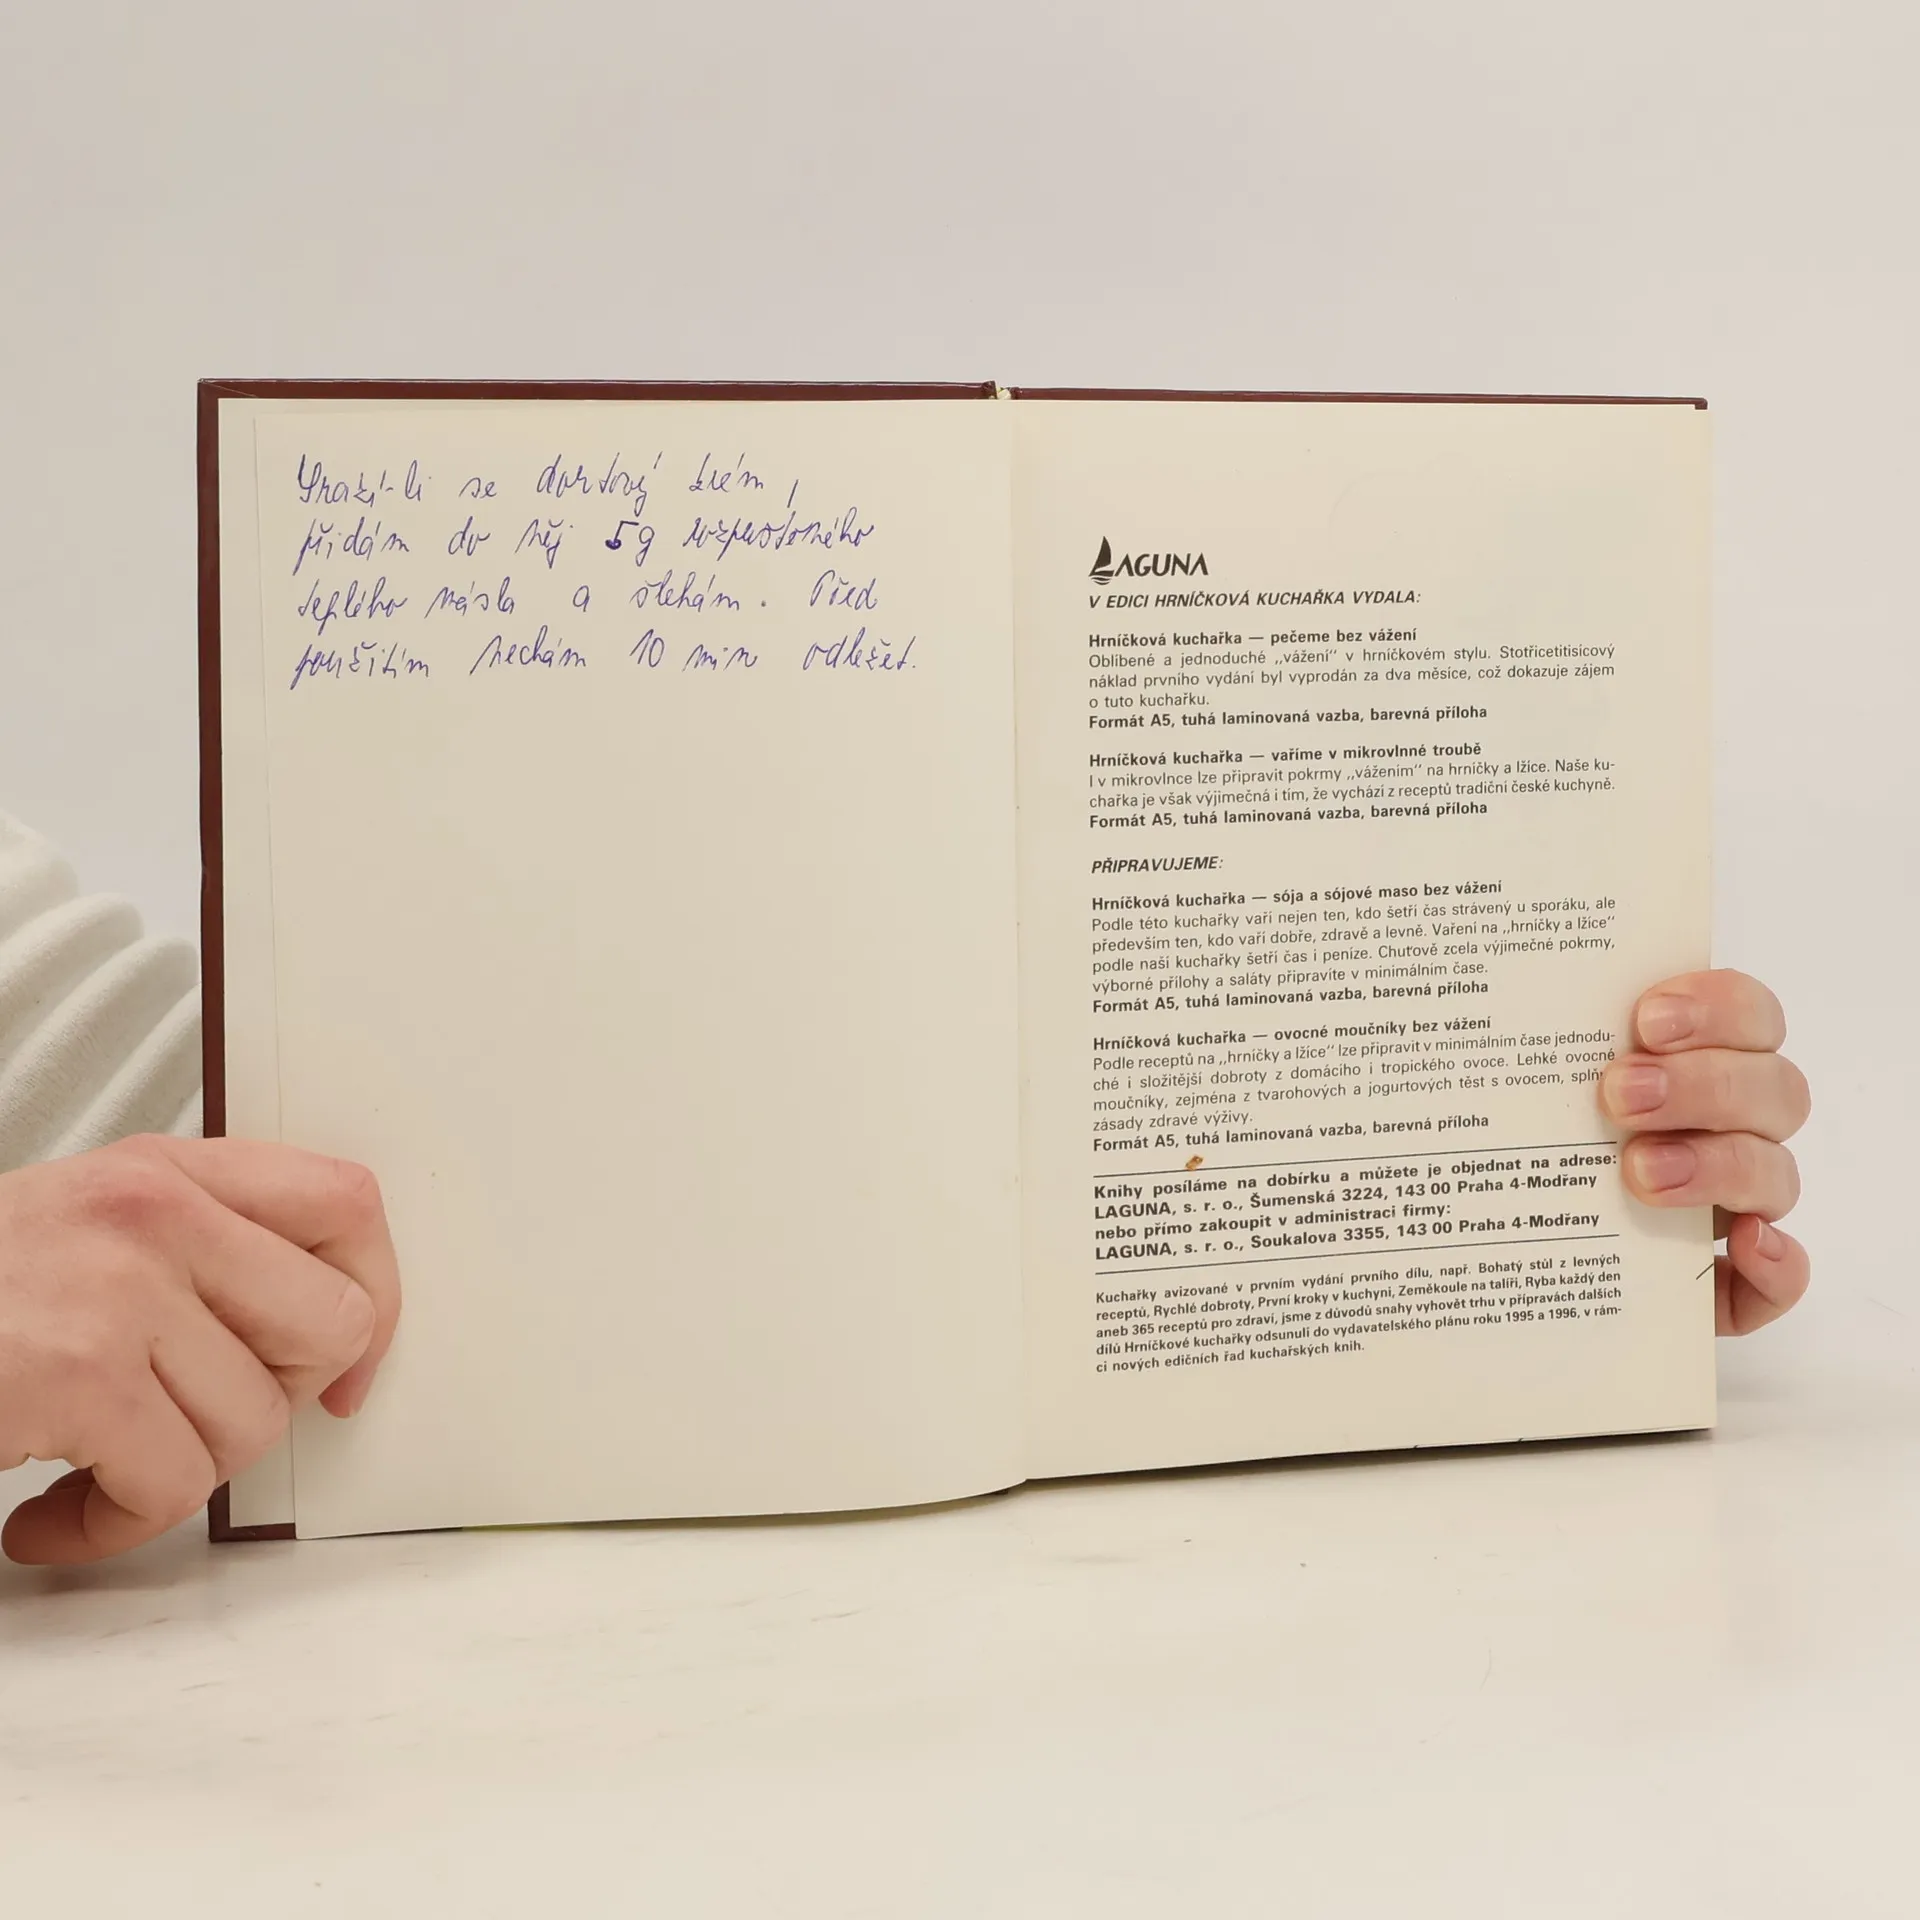 Srazí-li se dortový krém,
přidám do něj 5g rozpuštěného
teplého másla a šlehám. Před
použitím nechám 10 min odležet.
LAGUNA
V EDICI HRNÍČKOVÁ KUCHAŘKA VYDALA:
Hrníčková kuchařka — pečeme bez vážení
Oblíbené a jednoduché „vážení“ v hrníčkovém stylu. Stotřicetitisícový
náklad prvního vydání byl vyprodán za dva měsíce, což dokazuje zájem
o tuto kuchařku.
Formát A5, tuhá laminovaná vazba, barevná příloha
Hrníčková kuchařka — vaříme v mikrovlnné troubě
I v mikrovlnce lze připravit pokrmy „vážením“ na hrníčky a lžíce. Naše ku-
chařka je však výjimečná i tím, že vychází z receptů tradiční české kuchyně.
Formát A5, tuhá laminovaná vazba, barevná příloha
PŘIPRAVUJEME:
Hrníčková kuchařka — sója a sójové maso bez vážení
Podle této kuchařky vaří nejen ten, kdo šetří čas strávený u sporáku, ale
především ten, kdo vaří dobře, zdravě a levně. Vaření na „hrníčky a lžíce“
podle naší kuchařky šetří čas i peníze. Chuťově zcela výjimečné pokrmy,
výborné přílohy a saláty připravíte v minimálním čase.
Formát A5, tuhá laminovaná vazba, barevná příloha
Hrníčková kuchařka — ovocné moučníky bez vážení
Podle receptů na „hrníčky a lžíce“ lze připravit v minimálním čase jednodu-
ché i složitější dobroty z domácího i tropického ovoce. Lehké ovocné
moučníky, zejména z tvarohových a jogurtových těst s ovocem,
zásady zdravé výživy.
Formát A5, tuhá laminovaná vazba, barevná příloha
Knihy posíláme na dobírku a můžete je objednat na adrese:
LAGUNA, s. r. o., Šumenská 3224, 143 00 Praha 4-Modřany
nebo přímo zakoupit v administraci firmy:
LAGUNA, s. r. o., Soukalova 3355, 143 00 Praha 4-Modřany
Kuchařky avizované v prvním vydání prvního dílu, např. Bohatý stůl z levných
receptů, Rychlé dobroty, První kroky v kuchyni, Zeměkoule na talíři, Ryba každý den
aneb 365 receptů pro zdraví, jsme z důvodů snahy vyhovět trhu v přípravách dalších
dílů Hrníčkové kuchařky odsunuli do vydavatelského plánu roku 1995 a 1996, v rám-
ci nových edičních řad kuchařských knih.